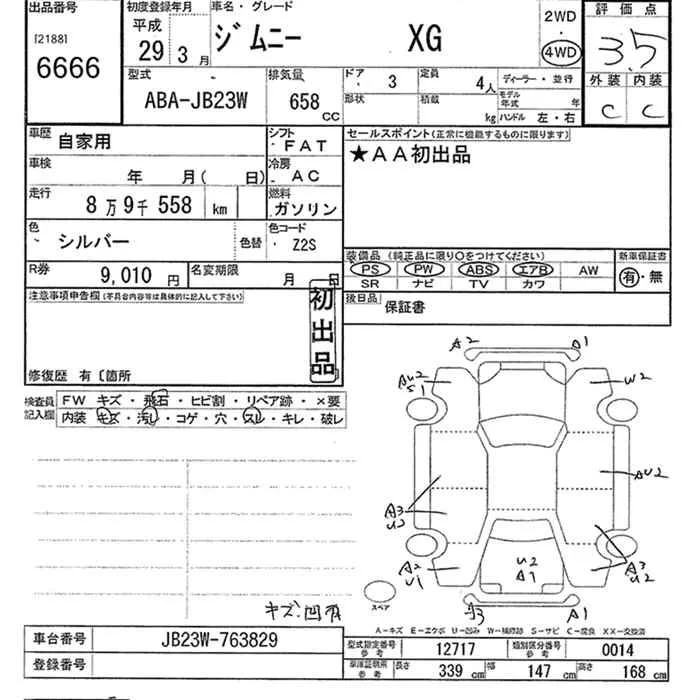 出品番号
[2188]
6666
初度登録年月
平成
29 3 月
車名・グレード
ジムニー XG
2WD
・
4WD
評価点
3.5
外装 内装
C C
型式
ABA-JB23W
排気量
658 CC
ドア 3
形状
定員 4人
積載 kg
ディーラー・並行
モデル年式 年
ハンドル 左・右
車歴 自家用
シフト ・FAT
車検 年 月( 日)
冷房 ・AC
走行 8万9千558 km
燃料 ガソリン
色 シルバー 色替
色コード Z2S
R券 9,010 円
名変期限 月 日
セールスポイント(正常に機能するものに限ります)
★AA初出品
装備品(純正品に限り○をつけてください)
PS PW ABS エアB AW
SR ナビ TV カワ
新車保証書
有・無
後日品 保証書
注意事項申告欄(不具合内容等は具体的に記入して下さい)
初出品
修復歴 有〔箇所
検査員記入欄
FW キズ・飛石・ヒビ割・リペア跡・×要
内装 キズ・汚レ・コゲ・穴・スレ・キレ・破レ
A2 A1
AU2
S1
W2
A3
U2
AU2
A2
U1
U2
A1
A3
U2
A3 A1
スペア
キズ.凹有
A-キズ E-エクボ U-凹み W-補修跡 S-サビ C-腐食 XX-交換済
車台番号 JB23W-763829
登録番号
型式指定番号 参考 12717
類別区分番号 参考 0014
車庫証明用 参考 長さ 339 cm 幅 147 cm 高さ 168 cm